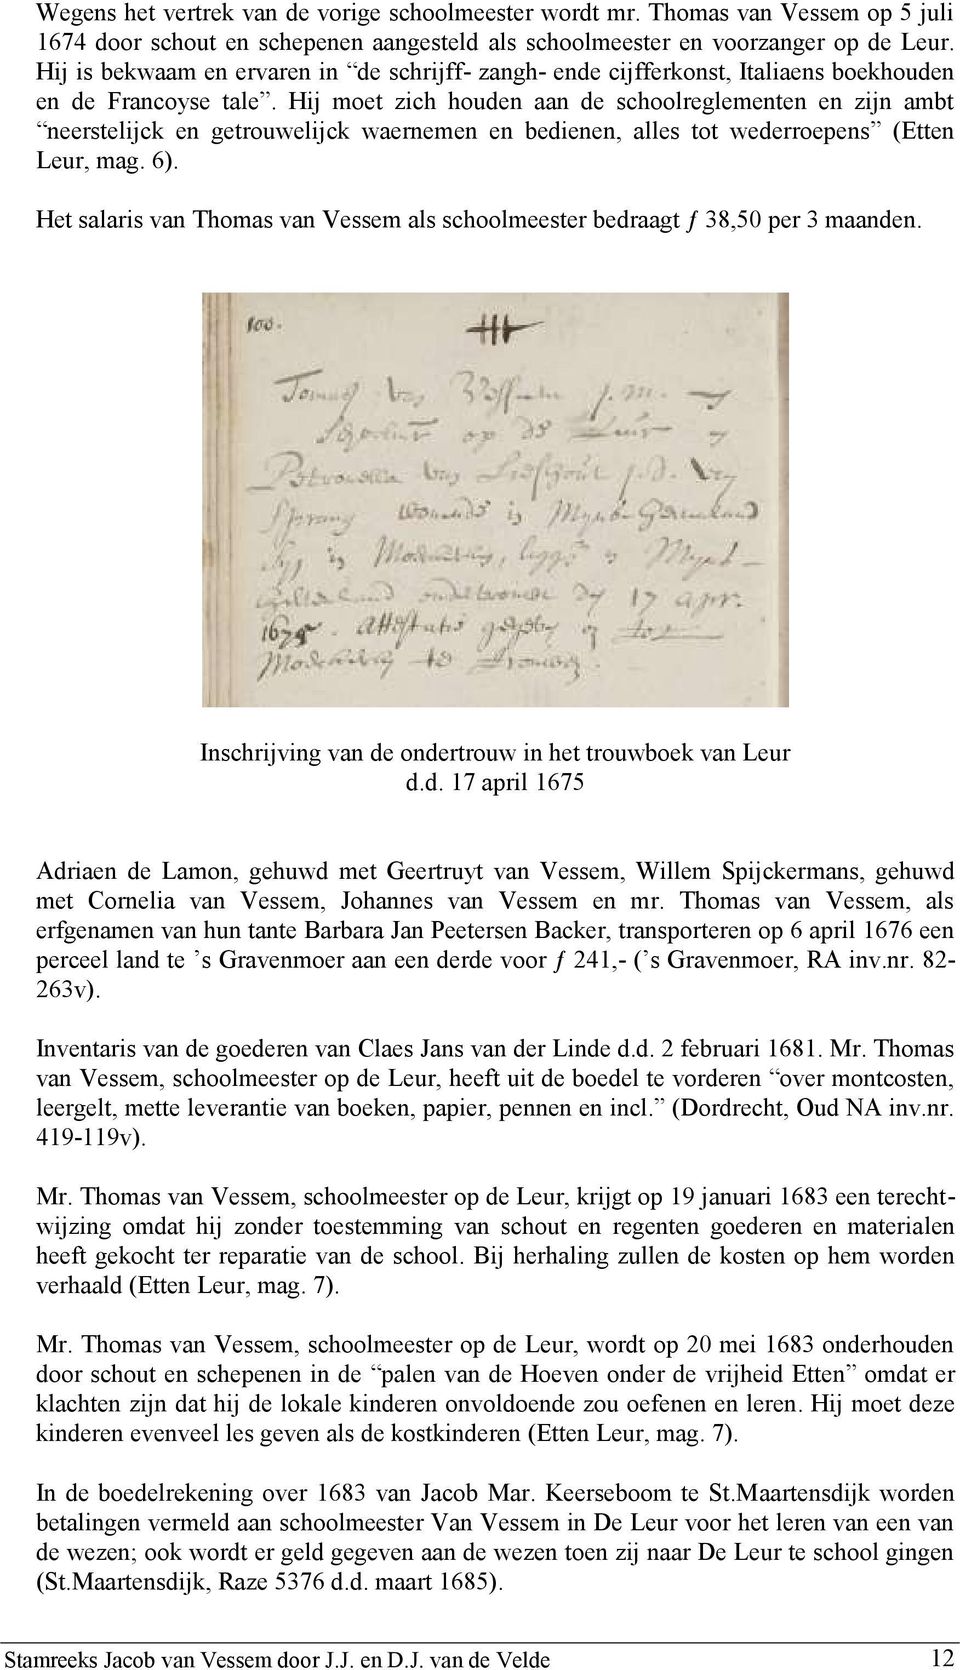 Wegens het vertrek van de vorige schoolmeester wordt mr. Thomas van Vessem op 5 juli
1674 door schout en schepenen aangesteld als schoolmeester en voorzanger op de Leur.
Hij is bekwaam en ervaren in “de schrijff- zangh- ende cijfferkonst, Italiaens boekhouden
en de Francoyse tale”. Hij moet zich houden aan de schoolreglementen en zijn ambt
“neerstelijck en getrouwelijck waernemen en bedienen, alles tot wederroepens” (Etten
Leur, mag. 6).
Het salaris van Thomas van Vessem als schoolmeester bedraagt ƒ 38,50 per 3 maanden.
100.
Tomas van Vessem j.m.
op de Leur
Petronella van j.d. van
Sprang in
in
17 apr.
1675. Attestatie
te
Inschrijving van de ondertrouw in het trouwboek van Leur
d.d. 17 april 1675
Adriaen de Lamon, gehuwd met Geertruyt van Vessem, Willem Spijckermans, gehuwd
met Cornelia van Vessem, Johannes van Vessem en mr. Thomas van Vessem, als
erfgenamen van hun tante Barbara Jan Peetersen Backer, transporteren op 6 april 1676 een
perceel land te ’s Gravenmoer aan een derde voor ƒ 241,- (’s Gravenmoer, RA inv.nr. 82-
263v).
Inventaris van de goederen van Claes Jans van der Linde d.d. 2 februari 1681. Mr. Thomas
van Vessem, schoolmeester op de Leur, heeft uit de boedel te vorderen “over montcosten,
leergelt, mette leverantie van boeken, papier, pennen en incl.” (Dordrecht, Oud NA inv.nr.
419-119v).
Mr. Thomas van Vessem, schoolmeester op de Leur, krijgt op 19 januari 1683 een terecht-
wijzing omdat hij zonder toestemming van schout en regenten goederen en materialen
heeft gekocht ter reparatie van de school. Bij herhaling zullen de kosten op hem worden
verhaald (Etten Leur, mag. 7).
Mr. Thomas van Vessem, schoolmeester op de Leur, wordt op 20 mei 1683 onderhouden
door schout en schepenen in de “palen van de Hoeven onder de vrijheid Etten” omdat er
klachten zijn dat hij de lokale kinderen onvoldoende zou oefenen en leren. Hij moet deze
kinderen evenveel les geven als de kostkinderen (Etten Leur, mag. 7).
In de boedelrekening over 1683 van Jacob Mar. Keerseboom te St.Maartensdijk worden
betalingen vermeld aan schoolmeester Van Vessem in De Leur voor het leren van een van
de wezen; ook wordt er geld gegeven aan de wezen toen zij naar De Leur te school gingen
(St.Maartensdijk, Raze 5376 d.d. maart 1685).
Stamreeks Jacob van Vessem door J.J. en D.J. van de Velde 12